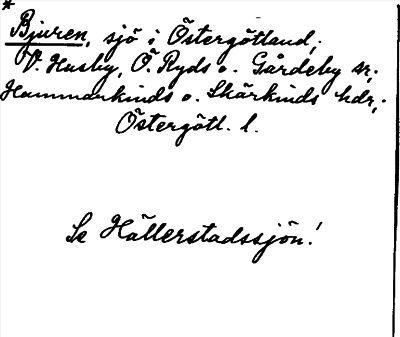 *
Bjuren, sjö i Östergötland;
V. Husby, Ö. Ryds o. Gårdeby sr;
Hammarkinds o. Skärkinds hdr,;
Östergötl. l.
Se Hällerstadssjön!